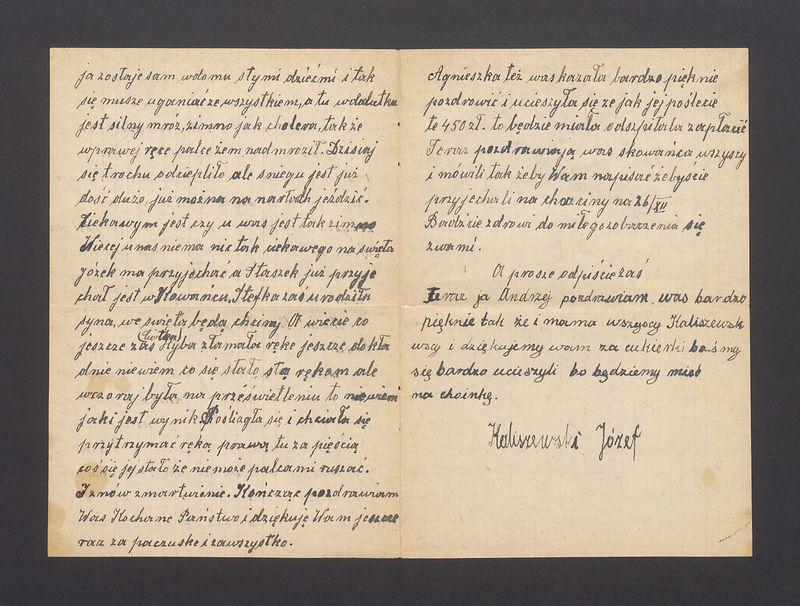 ja zostaje sam w domu stymi dziećmi i tak
się musze uganiać ze wszystkiem, a tu w dodutku
jest silny mróz, zimno jak cholera, tak że
w prawej ręce palce żem nadmroził. Dzisiaj
się trochu odciepliło ale sniegu jest już
dość dużo, już można na nartach jeździć.
Ciekawym jest czy u was jest tak zimno
Wiecej u nas niema nic tak ciekawego na święta
Józek ma przyjechać a Staszek już przyje
chał jest w Kowańcu, Stefka zas urodziła
syna, we święta będą chciny. A wiecie co
jeszcze zaś (Ciotka) Hyba złamała ręke jeszcze dokła
dnie niewiem co się stało stą rękom ale
wczoraj była na prześwietleniu to niewiem
jaki jest wynik. Pośliżgła się i chciała się
przytrzymać ręką prawą, tu za pięścią
coś się jej stało że niemoże palcami ruszać.
I znów zmartwienie. Kończąc pozdrawiam
Was Kochane Państwo i dziękuję Wam jeszcze
raz za paczuske i zawszystko.
Agnieszka też was kazała bardzo pięknie
pozdrowić i ucieszyła się ze jak jej poślecie
te 450 zł. to będzie miała odszpitala zapłacić
Teraz pozdrawiają was skowańca wszyscy
i mówili tak żeby Wam napisać żebyście
przyjechali na chrzciny na 26/XII
Bądźcie zdrowi do miłego zobaczenia się
z wami.
A prosze odpiście zaś
Teraz ja Andrzej pozdrawiam was bardzo
pięknie tak że i mama wszyscy Kaliszewsk
wscy i dziękujemy wam za cukierki bośmy
się bardzo ucieszyli bo będziemy mieć
na choinkę.
Kaliszewski Józef